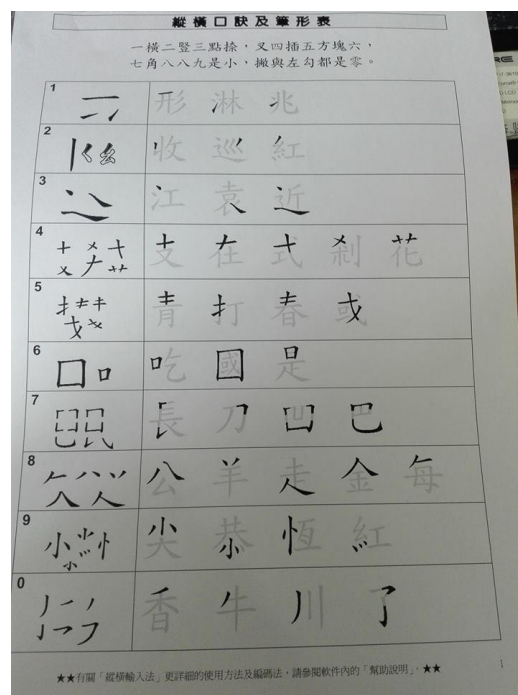 縱橫口訣及筆形表
一橫二豎三點捺，叉四插五方塊六，
七角八八九是小，撇與左勾都是零。
1 形 淋 兆
2 收 巡 紅
3 江 袁 近
4 支 在 式 剎 花
5 青 打 春 或
6 吃 國 是
7 長 刀 凹 巴
8 公 羊 走 金 每
9 尖 恭 恆 紅
0 香 牛 川 了
★★有關「縱橫輸入法」更詳細的使用方法及編碼法，請參閱軟件內的「幫助說明」. ★★
1